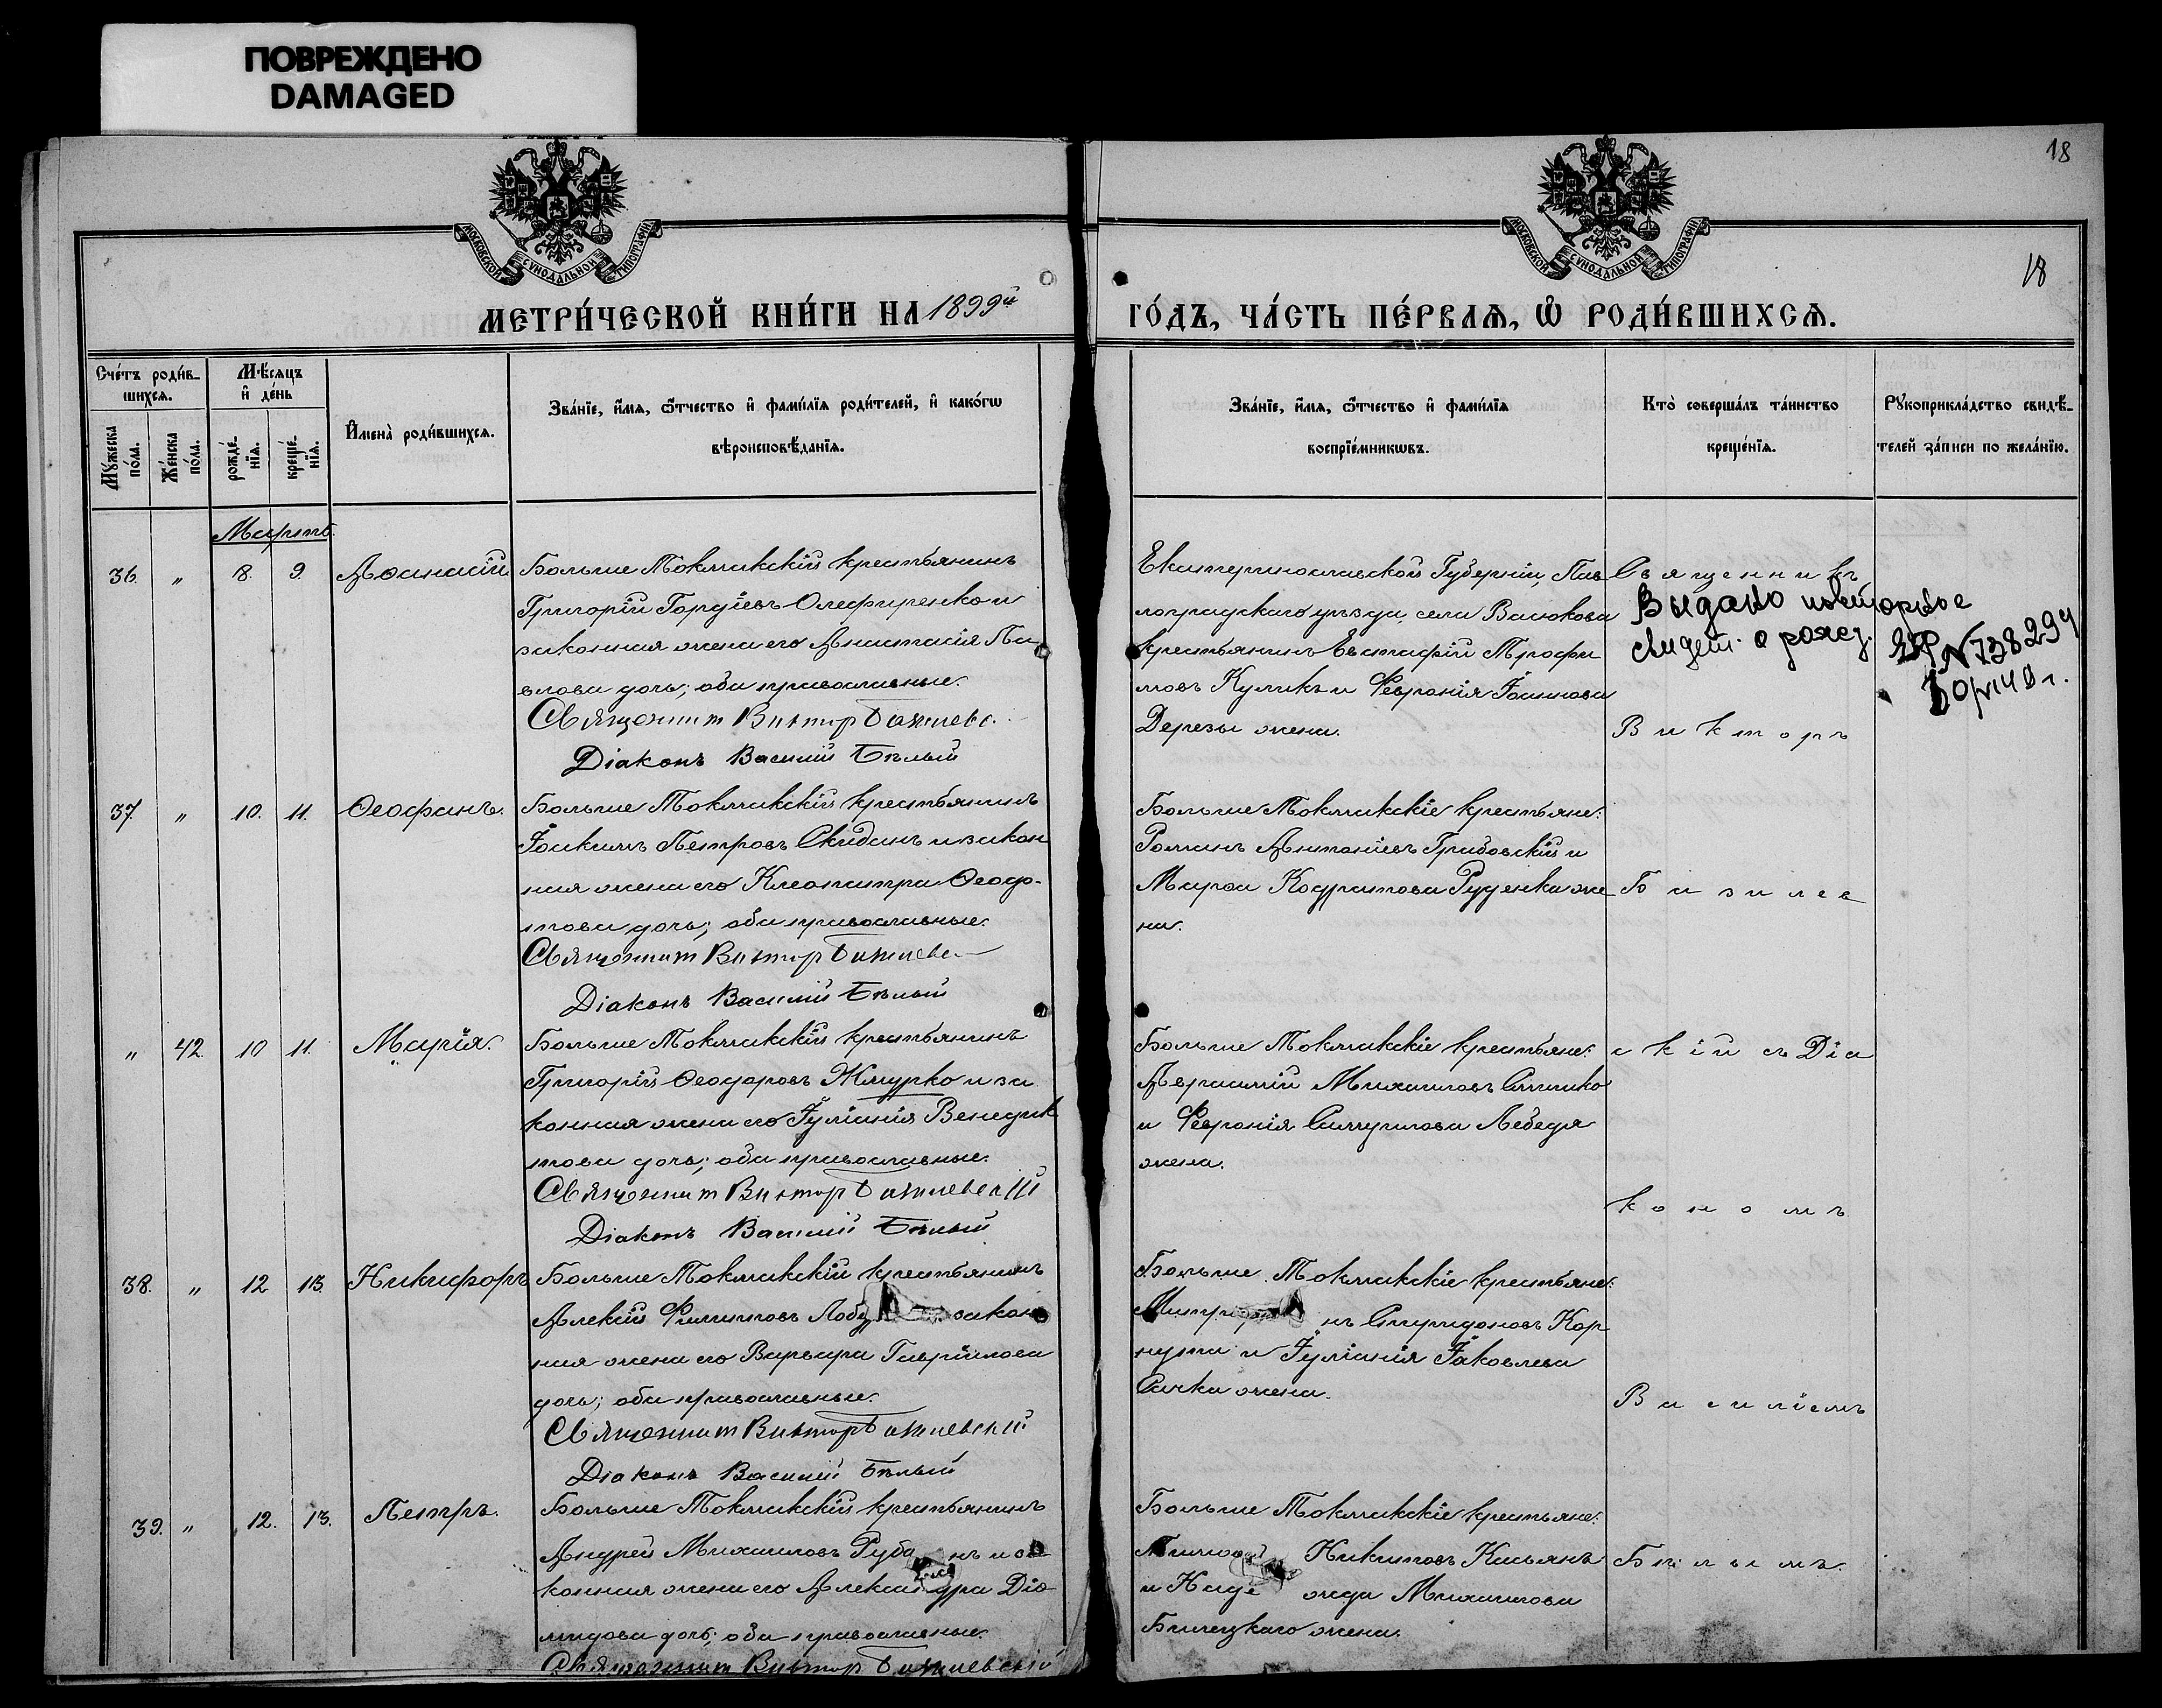 ПОВРЕЖДЕНО
DAMAGED
18
18
МОСКОВСКОЙ СѴНОДАЛЬНОЙ ТИПОГРАФІИ
МОСКОВСКОЙ СѴНОДАЛЬНОЙ ТИПОГРАФІИ
МЕТРИ́ЧЕСКОЙ КНИ́ГИ НА 1899й
ГО́ДЪ, ЧА́СТЬ ПЕ́РВАѦ, Ѡ РОДИ́ВШИХСѦ.
Сче́тъ роди́в-
шихсѧ.
Мꙋ́жеска по́ла.
Же́нска по́ла.
Мѣ́сѧцъ
и҆ де́нь
рожде́нїѧ.
креще́нїѧ.
И҆мена̀ роди́вшихсѧ.
Зва́нїе, и҆́мѧ, ѻ҆́тчество и҆ фами́лїѧ роди́телей, и҆ како́гѡ
вѣроисповѣ́данїѧ.
Зва́нїе, и҆́мѧ, ѻ҆́тчество и҆ фами́лїѧ
воспрїе́мникѡвъ.
Кто̀ соверша́лъ та́инство
креще́нїѧ.
Рꙋкоприкла́дство свидѣ́-
телей за́писи по жела́нїю.
Мартъ.
36. " 8. 9. Аѳанасій
Больше Токмакскій крестьянинъ
Григорій Гордіевъ Олефиренко и
законная жена его Анастасія Па-
влова дочь; оба православные.
Священник Виктор Базилевс.
Діаконъ Василий Бѣлый
Екатеринославской Губерніи, Пав
лоградскаго уѣзда, села Васюкова
крестьянинъ Евстафій Трофи
мовъ Куликъ и Февронія Іоаннова
Дерезы жена.
Священникъ
Выдано повторное
свидет. о рожд.
ЯР № 738294
Викторъ
37. " 10. 11. Ѳеофанъ.
Больше Токмакскій крестьянинъ
Іоакимъ Петровъ Скиданъ и закон
ная жена его Клеопатра Ѳеодо-
това дочь; оба православные.
Священник Виктор Базилевс
Діаконъ Василий Бѣлый
Больше Токмакскіе крестьяне:
Романъ Антоніевъ Грибовскій и
Марѳа Кодратова Руденка же
на.
Базилев
" 42. 10 11. Марія.
Больше Токмакскій крестьянинъ
Григорій Ѳеодоровъ Жмурко и за
конная жена его Іуліанія Венедик
това дочь; оба православные.
Священник Виктор Базилевскій
Діаконъ Василий Бѣлый
Больше Токмакскіе крестьяне:
Михаиловъ
и Февронія Самуилова Лебедя
жена.
скій съ Діа
кономъ
38. " 12 13. Никифоръ
Больше Токмакскій крестьянинъ
Алексій Филипповъ закон
ная жена его Варвара Гавріилова
дочь; оба православные.
Священник Виктор Базилевский
Діаконъ Василий Бѣлый
Больше Токмакскіе крестьяне:
нъ Спиридоновъ Кор
нута и Іуліанія Іаковлева
Сачка жена.
Василіемъ
39. " 12. 13. Петръ.
Больше Токмакскій крестьянинъ
Андрей Михаиловъ Руба нъ и за
конная жена его Александра Діо
мидова дочь; оба православные.
Священник Виктор Базилевскій
Больше Токмакскіе крестьяне:
Никитовъ Касьянъ
и Наде жда Михаилова
Билецкаго жена.
Бѣлымъ.